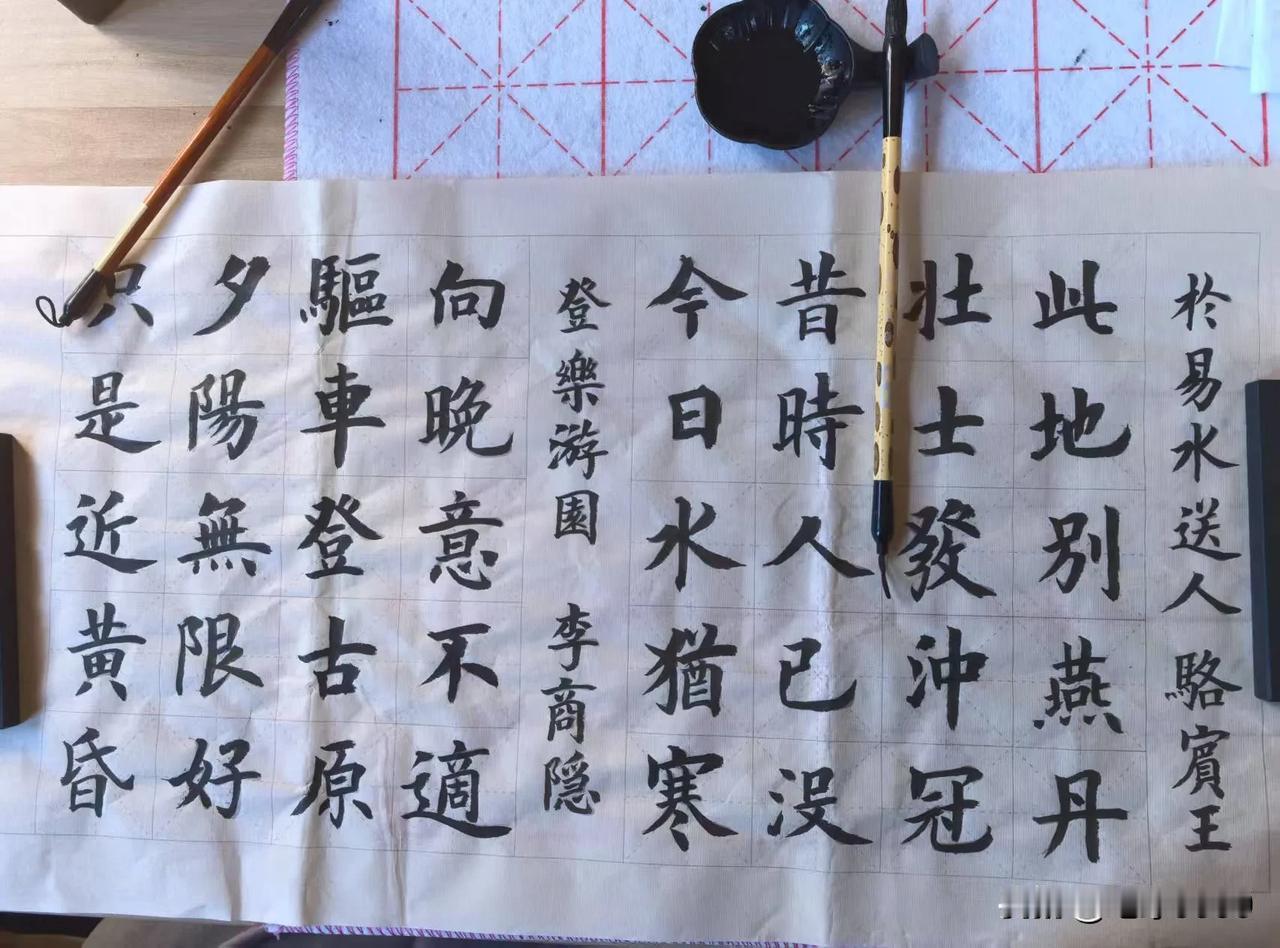 於易水送人 駱賓王
此地別燕丹
壯士發沖冠
昔時人已没
今日水猶寒
登樂游園 李商隐
向晚意不適
驅車登古原
夕陽無限好
只是近黄昏